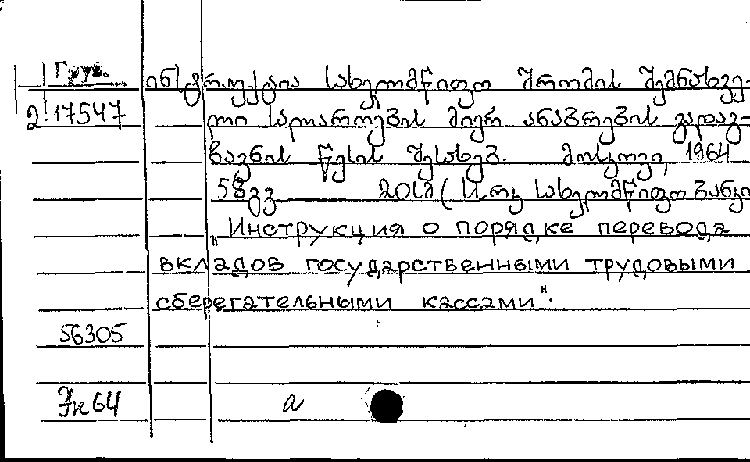 Груз. ინსტრუქცია სახელმწიფო შრომის შემნახვე-
2.17547 ლი სალაროების მიერ ანაბრების გადაგ-
ზავნის წესის შესახებ. მოსკოვი, 1964
58გვ 20სმ (სახელმწიფო ბანკი
"Инструкция о порядке перевода
вкладов государственными трудовыми
сберегательными кассами".
56305
64 а